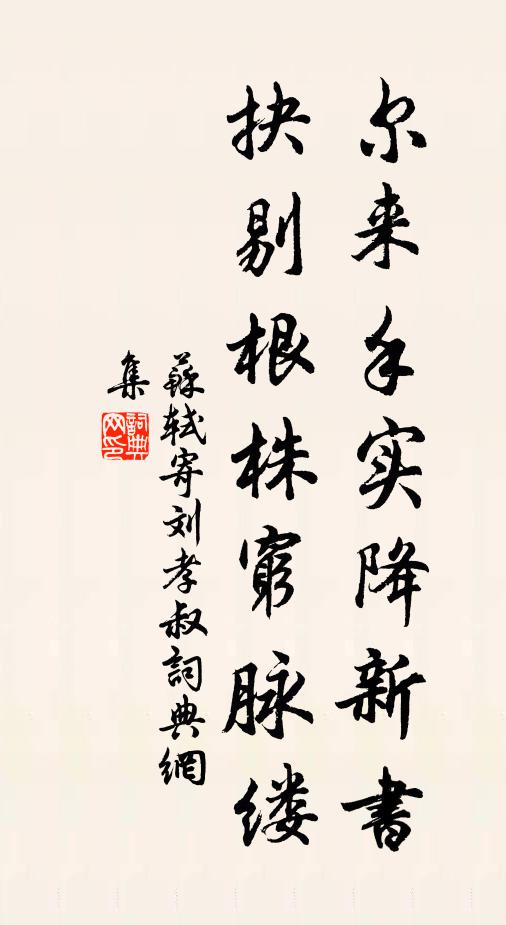 尔来手实降新书
抉剔根株穷脉缕
蘇轼寄刘孝叔詞典網
集
詞典
网印